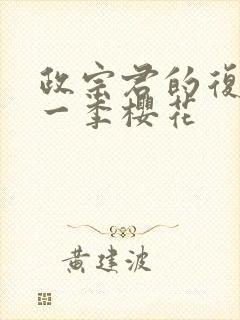 政宗君的復
一季櫻花
黃建波